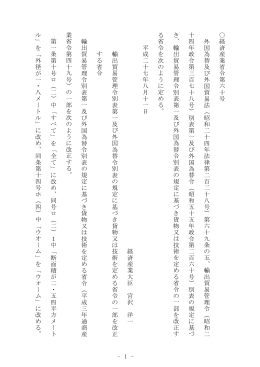 ○経済産業省令第六十号
外国為替及び外国貿易法（昭和二十四年法律第二百二十八号）第六十九条の五、輸出貿易管理令（昭和二
十四年政令第三百七十八号）別表第一及び外国為替令（昭和五十五年政令第二百六十号）別表の規定に基づ
き、輸出貿易管理令別表第一及び外国為替令別表の規定に基づき貨物又は技術を定める省令の一部を改正す
る省令を次のように定める。
平成二十七年八月十一日
経済産業大臣　宮沢　洋一
輸出貿易管理令別表第一及び外国為替令別表の規定に基づき貨物又は技術を定める省令の一部を改正
する省令
輸出貿易管理令別表第一及び外国為替令別表の規定に基づき貨物又は技術を定める省令（平成三年通商産
業省令第四十九号）の一部を次のように改正する。
第一条第十号ロ（二）中「全て」を「すべて」に改め、同号ロ（二）１中「断面積が二・五四平方メート
ル」を「外径が一・八メートル」に改め、同条第十四号ホ（四）中「ウオーム」を「ウォーム」に改める。
- 1 -